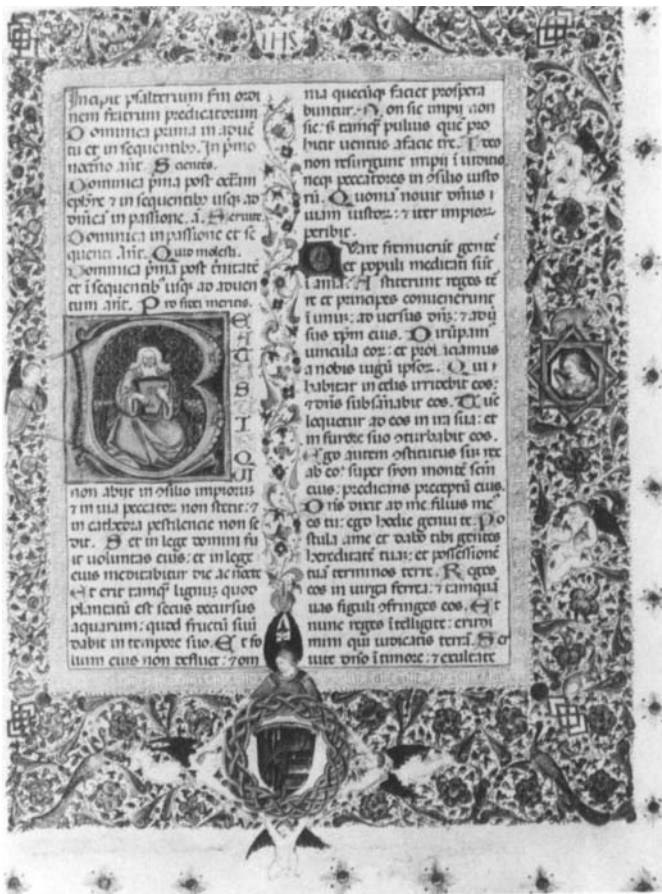 IHS
Incipit psalterium scdm ordi
nem fratrum predicatorum
Dominica prima in aduē
tu et in sequentibꝰ. In pͥmo
nocͭno ānͭ. Scientes.
Dominica pͥma post octām
ephyͥe ⁊ in sequentibꝰ usqꝫ ad
dnicā in passione. ā. Seruite.
Dominica in passione et se
quenti. Anͭ. Quid molesti.
Dominica pͥma post tnitatē
et ī sequentibꝰ usqꝫ ad aduen
tum anͭ. Pro fidei meritis.
BEATUS
UIR
QUI
non abijt in ꝯsilio impioruꝫ
⁊ in uia peccatoꝝ non stetit: ⁊
in cathedra pestilencie non se
dit. Set in lege domini fu
it uoluntas eius: et in lege
eius meditabitur die ac nocte
Et erit tamqꝫ lignuꝫ quod
plantatū est secus decursus
aquarum: quod fructū suū
dabit in tempore suo. Et fo
lium eius non defluet: ⁊ om
nia quecūqꝫ faciet prospera
buntur. Non sic impij non
sic: sꝫ tamqꝫ puluis quē pro
hicit uentus a facie tre. Ideo
non resurgunt impij ī iuditio
neqꝫ peccatores in ꝯsilio iusto
rū. Quoniā nouit dnīus
uiam iustoꝝ: ⁊ iter impioꝝ
peribit.
Quare fremuerūt gentes
et populi meditati sūt
īania. Astiterunt reges te
re et principes conuenerunt
ī unuꝫ: aduersus dnꝫ: ⁊ aduͥ
sus xp̄m eius. Dirūpam
uincula eoꝝ: et proīciamus
a nobis iugū ipsoꝝ. Qui
habitat in celis irridebit eos:
⁊ dns subsānabit eos. Tūc
loquetur ad eos in ira sua: et
in furore suo ꝯturbabit eos.
Ego autem ꝯstitutus suꝫ rex
ab eo: super sion montē scm
eius: predicans preceptū eius.
Dns dixit ad me filius me
es tu: ego hodie genui te. Po
stula a me et dabo tibi gentes
hereditatē tuaꝫ: et possessionē
tuā terminos terre. Reges
eos in uirga ferrea: ⁊ tamquā
uas figuli ꝯfringes eos. Et
nunc reges ītelligite: erudi
mini qui iudicatis terrā. Ser
uite dnō ī timore: ⁊ exultate